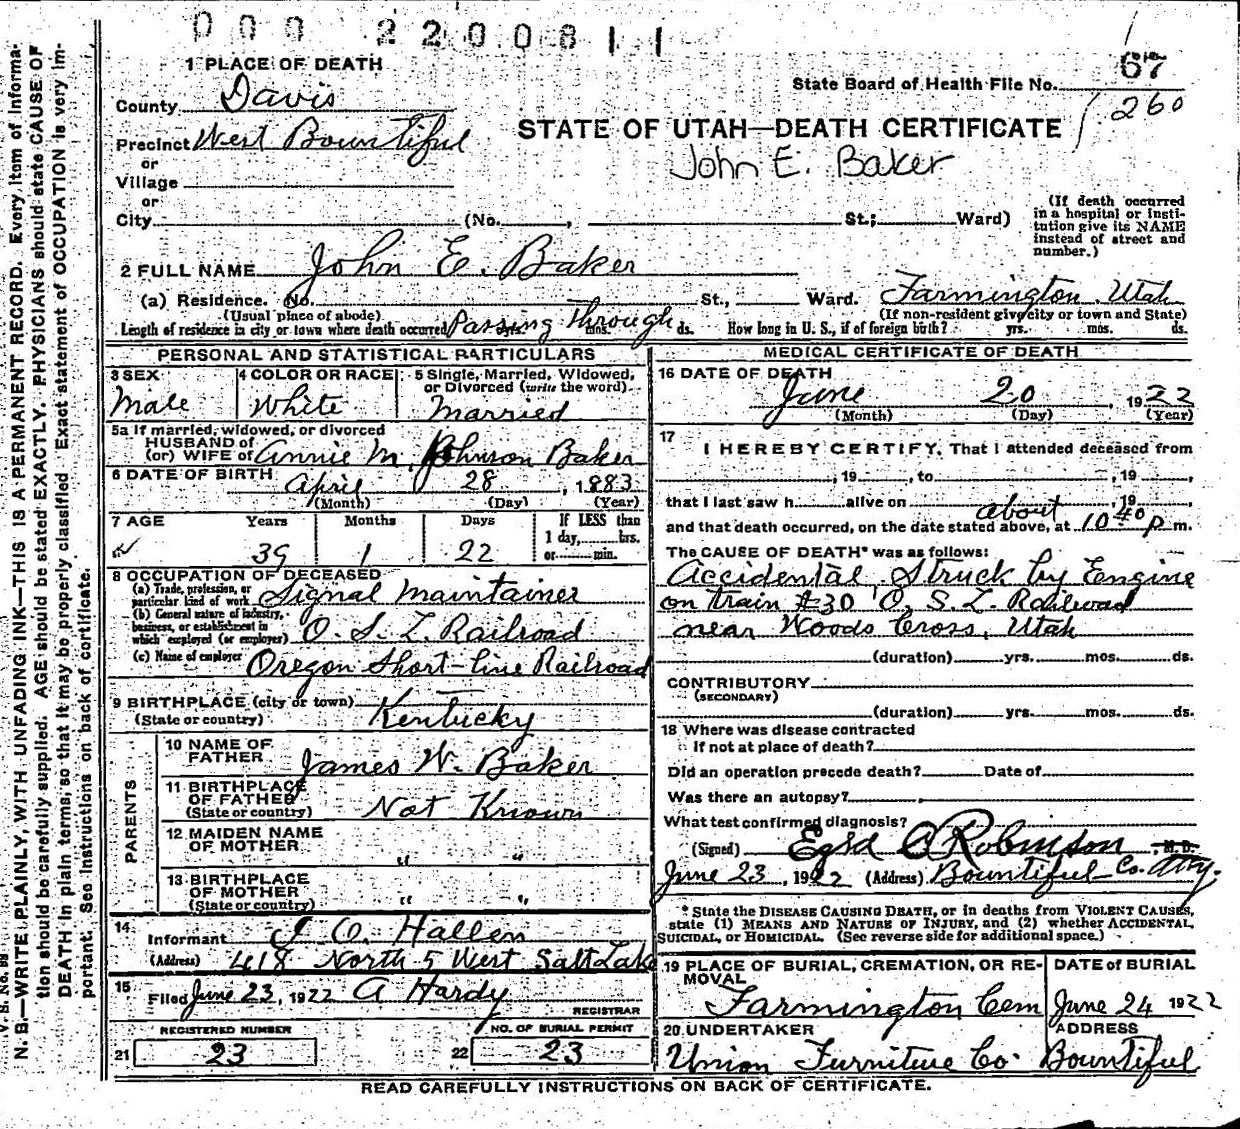 000 2200811
1 PLACE OF DEATH
State Board of Health File No. 67
260
County Davis
STATE OF UTAH—DEATH CERTIFICATE
Precinct West Bountiful
John E. Baker
or
Village
or
City (No. , St.; Ward)
(If death occurred in a hospital or insti-
tution give its NAME
instead of street and
number.)
2 FULL NAME John E. Baker
(a) Residence. No. St., Ward. Farmington Utah
(Usual place of abode) (If non-resident give city or town and State)
Length of residence in city or town where death occurred Passing Through mos. ds. How long in U. S., if of foreign birth? yrs. mos. ds.
PERSONAL AND STATISTICAL PARTICULARS
3 SEX
Male
4 COLOR OR RACE
White
5 Single, Married, Widowed,
or Divorced (write the word)
Married
5a If married, widowed, or divorced
HUSBAND of
(or) WIFE of Annie M. Johnson Baker
6 DATE OF BIRTH April 28, 1883
(Month) (Day) (Year)
7 AGE Years Months Days If LESS than
1 day, hrs.
or min.
39 1 22
8 OCCUPATION OF DECEASED
(a) Trade, profession, or
particular kind of work Signal Maintainer
(b) General nature of industry,
business, or establishment in
which employed (or employer) O. S. L. Railroad
(c) Name of employer Oregon Short-line Railroad
9 BIRTHPLACE (city or town)
(State or country) Kentucky
PARENTS
10 NAME OF
FATHER James W. Baker
11 BIRTHPLACE
OF FATHER
(State or country) Not Known
12 MAIDEN NAME
OF MOTHER " "
13 BIRTHPLACE
OF MOTHER
(State or country) " "
14
Informant J O. Hallen
(Address) 418 North 5 West Salt Lake
15
Filed June 23, 1922 A Hardy
REGISTRAR
REGISTERED NUMBER
21 23
NO. OF BURIAL PERMIT
22 23
MEDICAL CERTIFICATE OF DEATH
16 DATE OF DEATH
June 20, 1922
(Month) (Day) (Year)
17
I HEREBY CERTIFY, That I attended deceased from
, 19 , to , 19 ,
that I last saw h alive on , 19
and that death occurred, on the date stated above, at about 10 40 P m.
The CAUSE OF DEATH* was as follows:
Accidental, Struck by Engine
on train #30 O. S. L. Railroad
near Woods Cross, Utah
(duration) yrs. mos. ds.
CONTRIBUTORY
(SECONDARY)
(duration) yrs. mos. ds.
18 Where was disease contracted
if not at place of death?
Did an operation precede death? Date of
Was there an autopsy?
What test confirmed diagnosis?
(Signed) O Robinson M. D.
June 23, 1922 (Address) Bountiful— Co. Atty.
* State the DISEASE CAUSING DEATH, or in deaths from VIOLENT CAUSES,
state (1) MEANS AND NATURE OF INJURY, and (2) whether ACCIDENTAL,
SUICIDAL, OR HOMICIDAL. (See reverse side for additional space.)
19 PLACE OF BURIAL, CREMATION, OR RE-
MOVAL
Farmington Cem
DATE of BURIAL
June 24 1922
20 UNDERTAKER
Union Furniture Co.
ADDRESS
Bountiful
READ CAREFULLY INSTRUCTIONS ON BACK OF CERTIFICATE.
N. B.—WRITE PLAINLY, WITH UNFADING INK—THIS IS A PERMANENT RECORD. Every item of informa-
tion should be carefully supplied. AGE should be stated EXACTLY. PHYSICIANS should state CAUSE OF
DEATH in plain terms, so that it may be properly classified. Exact statement of OCCUPATION is very im-
portant. See instructions on back of certificate.